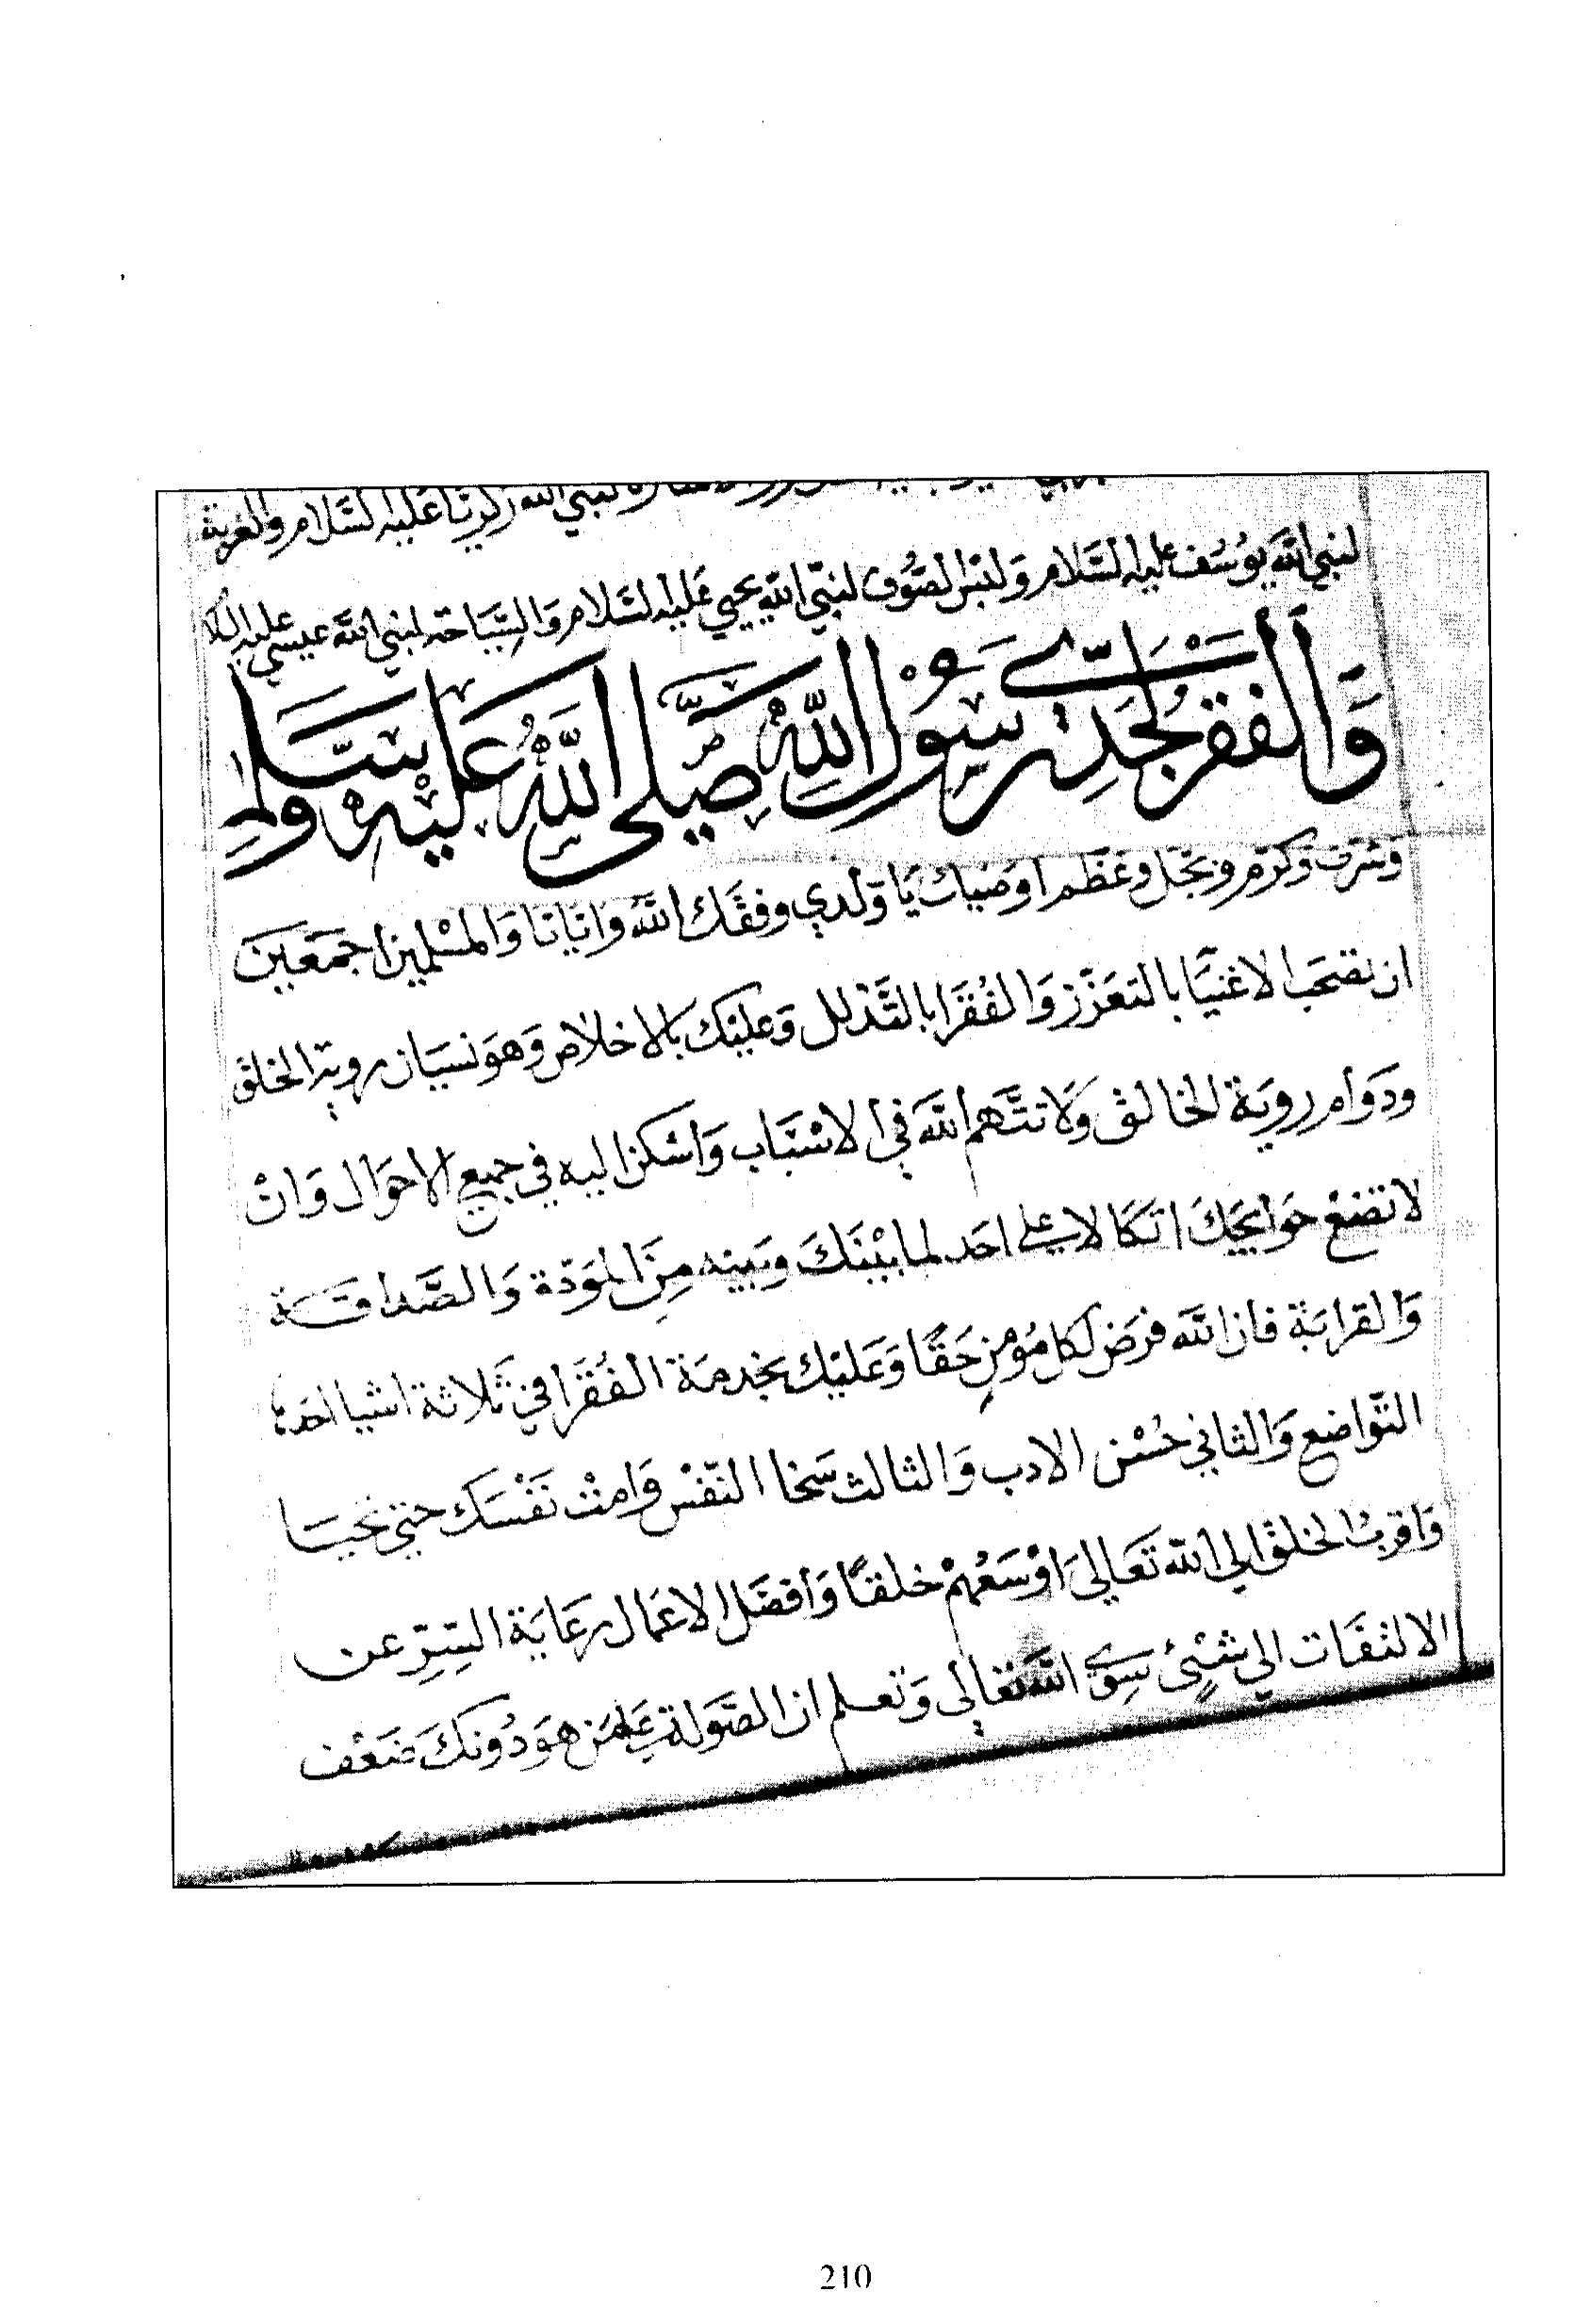 لنبي الله زكريا عليه السلام والغربة
لنبي الله يوسف عليه السلام ولبس الصوف لنبي الله يحيي عليه السلام والسياحة لنبي الله عيسي عليه السلام
والفقر لجدي رسول الله صلى الله عليه وسلم
وشرف وكرم وبجل وعظم اوصيك يا ولدي وفقك الله وايانا والمسلمين اجمعين
ان تصحب الاغنيا بالتعزز والفقرا بالتذلل وعليك بالاخلاص وهو نسيان روية الخلق
ودوام روية الخالق ولا تتهم الله في الاسباب واسكن اليه في جميع الاحوال وان
لا تضع حوايجك اتكالا علي احد لما بينك وبينه من المودة والصداقة
والقرابة فان الله فرض لكل مومن حقا وعليك بخدمة الفقرا في ثلاثة اشيا احدها
التواضع والثاني حسن الادب والثالث سخا النفس وامت نفسك حتي تحيا
واقرب الخلق الي الله تعالي اوسعهم خلقا وافضل الاعمال رعاية السر عن
الالتفات الي شيئ سوي الله تعالي وتعلم ان الصولة علي من هو دونك ضعف
210